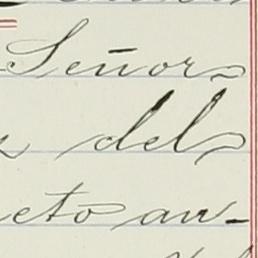 Señor
del
eto an-